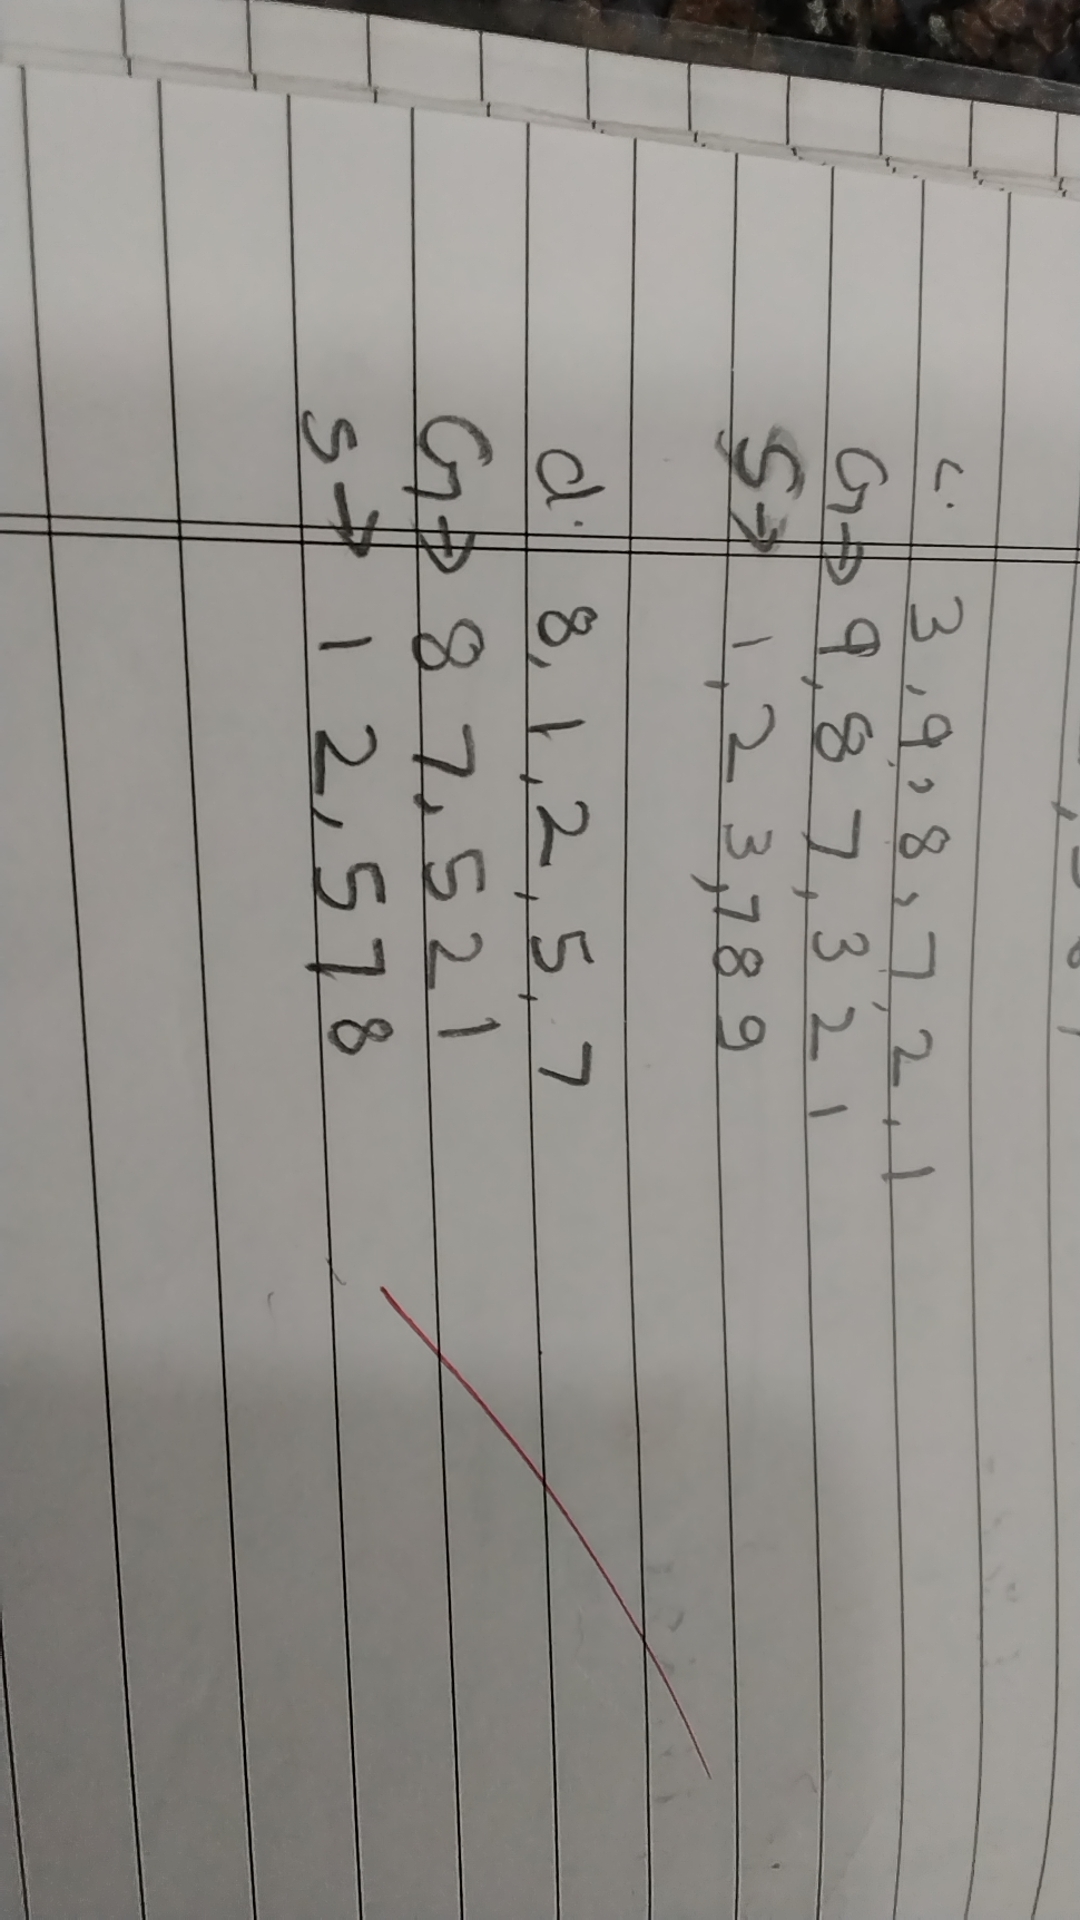 c. 3,9,8,7,2,1
G→ 9,87,321
S→ 1,23,789
d. 8,1,2,5,7
G→ 87,521
S→ 12,578